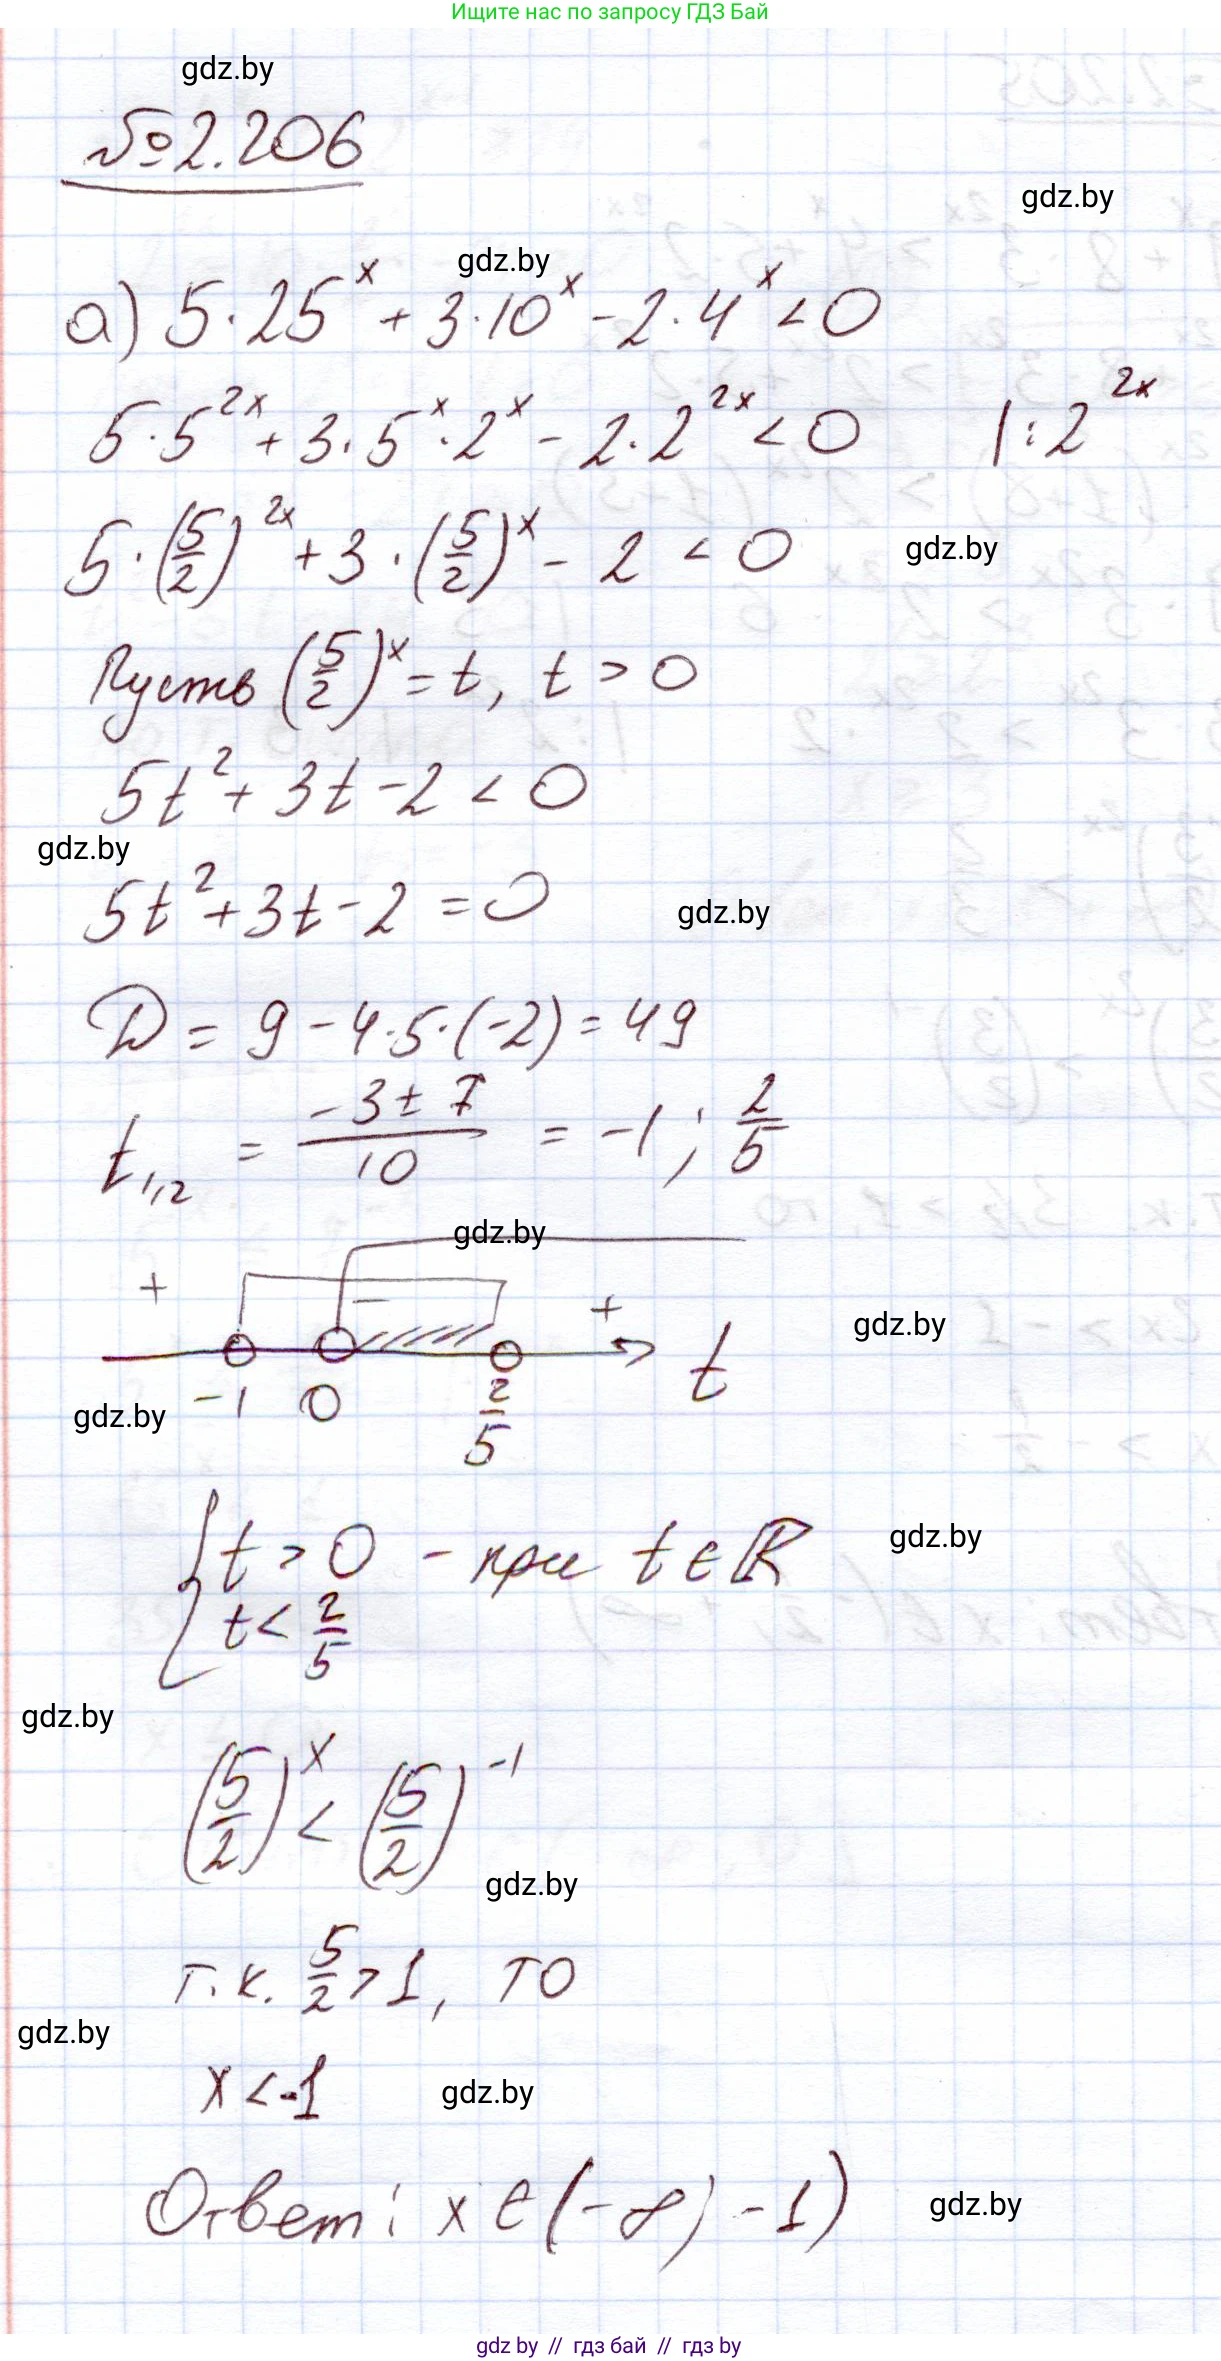 Ищите нас по запросу ГДЗ Бай
gdz.by
№2.206
gdz.by
gdz.by
а) 5·25^x + 3·10^x - 2·4^x < 0
5·5^2x + 3·5^x·2^x - 2·2^2x < 0 |:2^2x
5·(5/2)^2x + 3·(5/2)^x - 2 < 0
gdz.by
Пусть (5/2)^x = t, t > 0
5t² + 3t - 2 < 0
gdz.by
5t² + 3t - 2 = 0
gdz.by
D = 9 - 4·5·(-2) = 49
t1,2 = (-3 ± 7)/10 = -1; 2/5
gdz.by
+ - +
gdz.by
-1 0 2/5 t
gdz.by
{ t > 0 - при t ∈ ℝ
gdz.by
t < 2/5
gdz.by
(5/2)^x < (5/2)^-1
gdz.by
т.к. 5/2 > 1, то
gdz.by
x < -1
gdz.by
Ответ: x ∈ (-∞; -1)
gdz.by
gdz by // гдз бай // gdz by